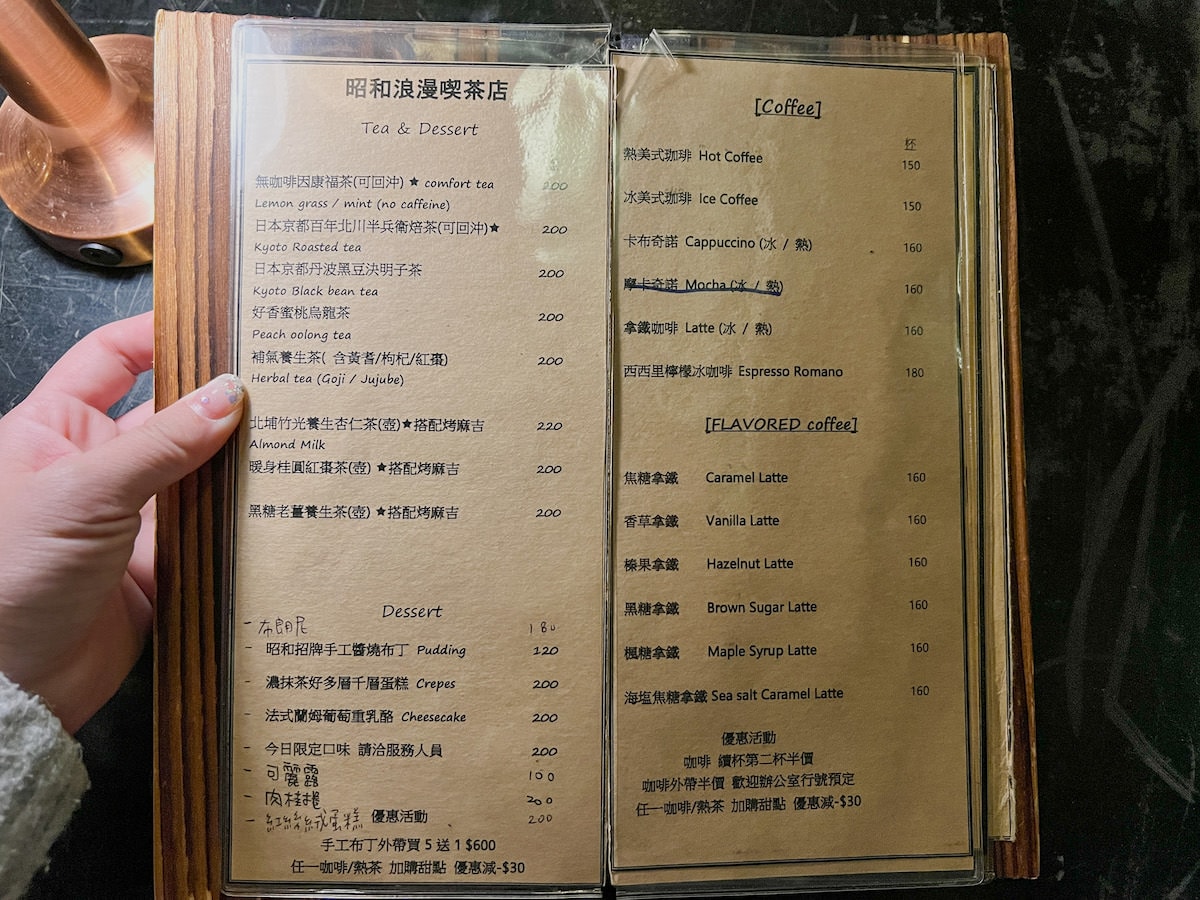 昭和浪漫喫茶店
Tea & Dessert
無咖啡因康福茶(可回沖) ★ comfort tea 200
Lemon grass / mint (no caffeine)
日本京都百年北川半兵衛焙茶(可回沖)★ 200
Kyoto Roasted tea
日本京都丹波黑豆決明子茶 200
Kyoto Black bean tea
好香蜜桃烏龍茶 200
Peach oolong tea
補氣養生茶( 含黃耆/枸杞/紅棗) 200
Herbal tea (Goji / Jujube)
北埔竹光養生杏仁茶(壺)★搭配烤麻吉 220
Almond Milk
暖身桂圓紅棗茶(壺) ★搭配烤麻吉 200
黑糖老薑養生茶(壺) ★搭配烤麻吉 200
Dessert
- 布朗尼 180
- 昭和招牌手工醬燒布丁 Pudding 120
- 濃抹茶好多層千層蛋糕 Crepes 200
- 法式蘭姆葡萄重乳酪 Cheesecake 200
- 今日限定口味 請洽服務人員 200
- 可麗露 100
- 肉桂捲 200
- 紅絲絨蛋糕 200
優惠活動
手工布丁外帶買 5 送 1 $600
任一咖啡/熱茶 加購甜點 優惠減-$30
[Coffee]
杯
熱美式珈琲 Hot Coffee 150
冰美式珈琲 Ice Coffee 150
卡布奇諾 Cappuccino (冰 / 熱) 160
摩卡奇諾 Mocha (冰 / 熱) 160
拿鐵咖啡 Latte (冰 / 熱) 160
西西里檸檬冰咖啡 Espresso Romano 180
[FLAVORED coffee]
焦糖拿鐵 Caramel Latte 160
香草拿鐵 Vanilla Latte 160
榛果拿鐵 Hazelnut Latte 160
黑糖拿鐵 Brown Sugar Latte 160
楓糖拿鐵 Maple Syrup Latte 160
海塩焦糖拿鐵 Sea salt Caramel Latte 160
優惠活動
咖啡 續杯第二杯半價
咖啡外帶半價 歡迎辦公室行號預定
任一咖啡/熱茶 加購甜點 優惠減-$30